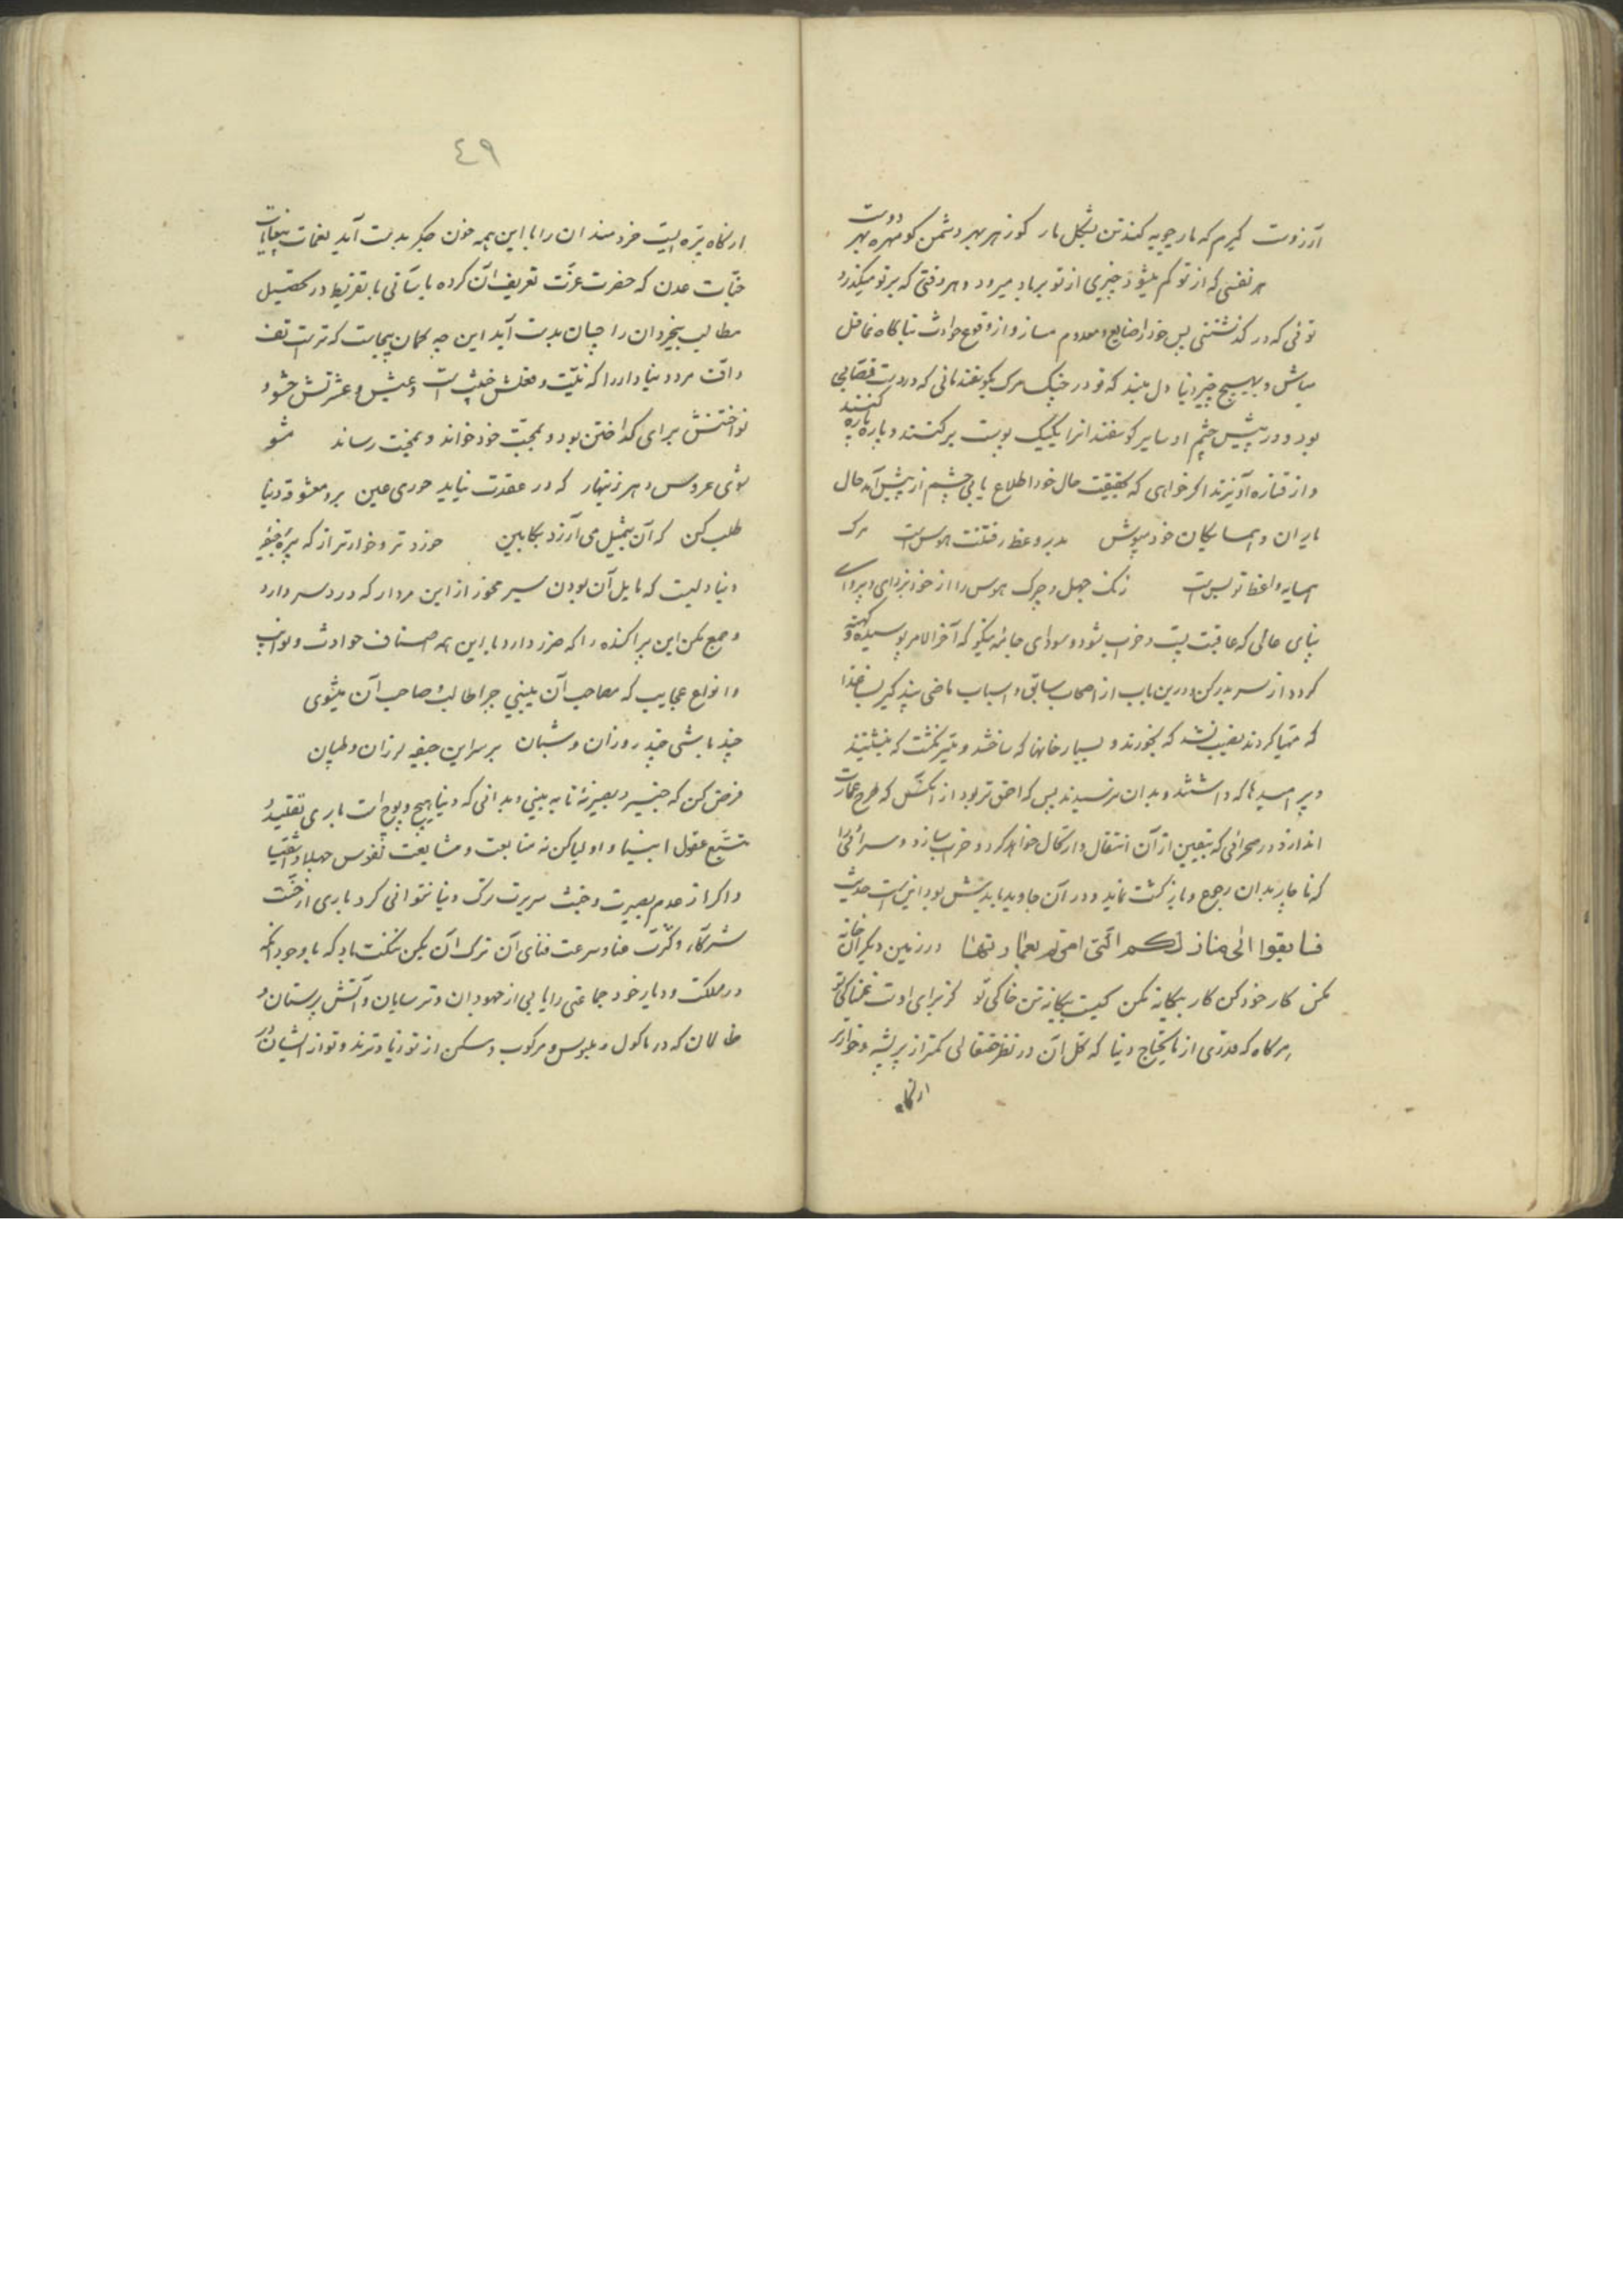 آرزوست گیرم که مارچوبه کند تن بشکل مار کو زهر بهر دشمن کو مهره بهر دوست
هر نفسی که از تو کم میشود چیزی از تو برباد میرود و هر وقتی که بر تو میگذرد
توئی که در گذشتنی پس خود را ضایع و معدوم مساز و از وقوع حوادث ناگاه غافل
مباش و بهیچ چیز دنیا دل مبند که تو در چنگ مرک بگوسفند مانی که در دست قصابی
بود و در پیش چشم او سایر گوسفندانرا یکیک پوست بر کنند و پاره پاره کنند
و از قناره آویزند اگر خواهی که بحقیقت حال خود اطلاع یابی چشم از پیش آمد حال
یاران و همسایگان خود مپوش مدبر وعظ رفتنت هوس است مرک
همسایه واعظ تو بس است زنک جهل و چرک هوس را از خود بزدای و پروای
بنای عالی که عاقبت پست و خراب شود و سودای جامه نیکو که آخر الامر پوسیده و کهنه
گردد از سر بدر کن و درین باب از اصحاب سابق و اسباب ماضی پند گیر بسا غذا
که مهیا کردند نصیب نشد که بخورند و بسیار خانها که ساختند و میسر نگشت که بنشینند
و پر امیدها که داشتند و بدان نرسیدند پس که احمق تر بود از انکس که طرح عمارت
اندازد در صحرائی که بیقین از آن انتقال و ارتحال خواهد کرد و خراب سازد و سرائی را
که ناچار بدان رجوع و بازگشت نماید و در آن جاوید باید بش بود این است حدیث
فسابقوا الی منازلکم الّتی امرتم بعمارتها در زمین دیگران خانه
مکن کار خود کن کار بیگانه مکن کیست بیگانه تن خاکی تو کز برای اوست غمناکی تو
هر گاه که قدری از مایحتاج دنیا که کل آن در نظر حقتعالی کمتر از پر پشه و خوارتر
از نگاه
۴۹
از نگاه تیره ایست خردمندان را با این همه خون جگر بدست آید نعمات بیغایات
جنّات عدن که حضرت عزّت تعریف آن کرده بآسانی با تفریط در تحصیل
مطالب بیخردان را چسان بدست آید این چه گمان بیجاست که ترا است تف
و اف مر دنیا دار را که نیّت و فعلش خبیث است و عیش و عشرتش حشو و
نواختنش برای گداختن بود و بمحبّت خود خواند و بمحنت رساند مشو
شوی عروس دهر زنهار که در عقدت نیاید حوری عین برو معشوقه دنیا
طلب کن که آن بتمثیل می آرزد بکابین خردتر و خوارتر از که پیرهٔ جیفهٔ
دنیا نیست که مایل آن بودن سیر مخور از این مردار که درد سر دارد
و جمع مکن این پراکنده را که ضرر دارد با این همه اصناف حوادث و نوائب
و انواع عجایب که مصاحب آن میبینی چرا طالب و صاحب آن میشوی
چند باشی چند روزان و شبان بر سر این جیفه لرزان و طپان
فرض کن که خبیر و بصیر نهٔ تا به بینی و بدانی که دنیا هیچ و پوچ است باری تقلید و
تتبّع عقول انبیا و اولیا کن نه متابعت و مشایعت نفوس جهلا و اشقیا
و اگر از عدم بصیرت و خبث سریرت ترک دنیا نتوانی کرد باری از خسّت
شرکآء و کثرت عنا و سرعت فنای آن ترک آن بکن ننگت باد که با وجود آنکه
در مملکت و دیار خود جماعتی را یابی از جهودان و ترسایان و آتش پرستان و
ظالمان که در ماکول و ملبوس و مرکوب و مسکن از تو زیادترند و تو از ایشان